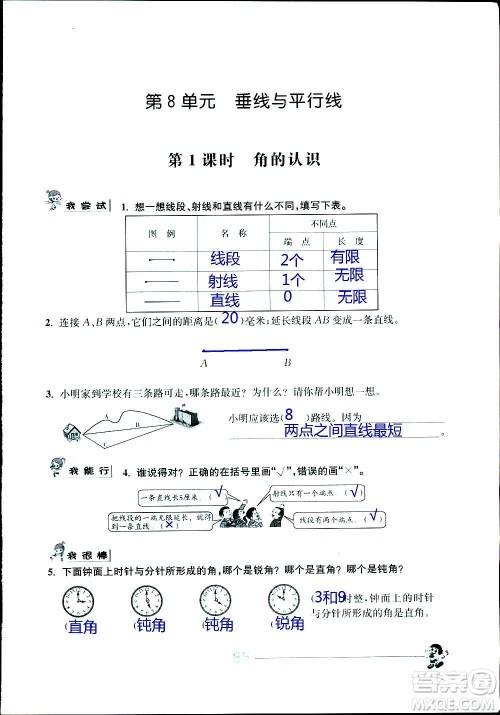 第8单元 垂线与平行线
第1课时 角的认识
我尝试
1. 想一想线段、射线和直线有什么不同,填写下表。
图例 名称 不同点
端点 长度
线段 2个 有限
射线 1个 无限
直线 0 无限
2. 连接A、B两点,它们之间的距离是(20)毫米;延长线段AB变成一条直线。
A B
3. 小明家到学校有三条路可走,哪条路最近?为什么?请你帮小明想一想。
小明应该选(8)路线。因为
两点之间直线最短。
我能行
4. 谁说得对?正确的在括号里画“√”,错误的画“×”。
一条直线长5厘米。(√)
射线只有一个端点。(√)
把线段的一端无限延长,就得到一条射线。(√)
线段有两个端点。(√)
我很棒
5. 下面钟面上时针与分针所形成的角,哪个是锐角?哪个是直角?哪个是钝角?
(直角) (钝角) (钝角) (锐角)
(3和9)时整,钟面上的时针
与分针所形成的角是直角。
85
答案圈